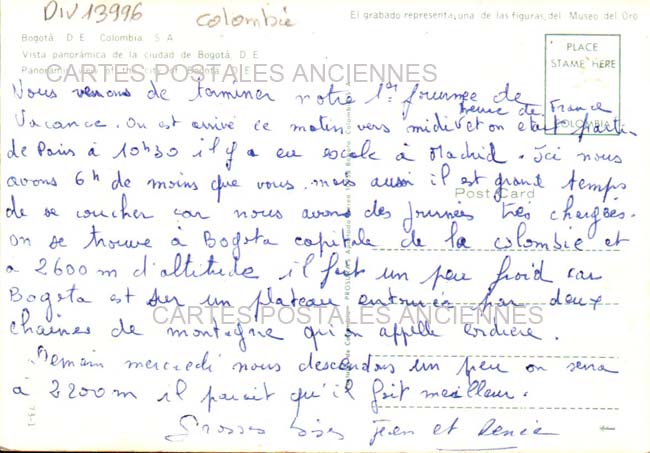 DIV 13996
colombie
El grabado representa, una de las figuras, del Museo del Oro
Bogotá. D. E. Colombia. S. A.
Vista panorámica de la ciudad de Bogotá. D. E.
CARTES POSTALES ANCIENNES
PLACE
STAMP HERE
COLOMBIA
Nous venons de terminer notre 1er journée de
heure de France
Vacance. On est arrivé ce matin vers midi et on était parti
de Paris à 10h30 il y a eu escale à Madrid. Ici nous
avons 6h de moins que vous, mais aussi il est grand temps
Post Card
de se coucher car nous avons des journées très chargées.
on se trouve à Bogota capitale de la colombie et
a 2600m d'altitude il fait un peu froid car
Bogota est sur un plateau entourée par deux
CARTES POSTALES ANCIENNES
chaines de montagne qu'on appelle cordiere.
Demain mercredi nous descendons un peu on sera
a 2200m il parait qu'il fait meilleur.
Grosses bises Jean et Renée